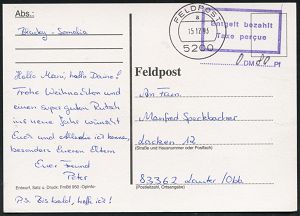 Abs.:
Somalia
Hallo Mani, hallo Daine!
Frohe Weihnachten und
einen super guten Rutsch
ins neue Jahr wünscht
Euch und alles
besonders Eueren Eltern
Euer Freund
Peter
Entwurf, Satz u. Druck: FmBtl 950 -OpInfo-
P.S. Bis bald, hoffe ich!
FELDPOST
a
15.12.93
5200
Entgelt bezahlt
Taxe perçue
DM Pf
Feldpost
An Fam.
Manfred Sporkbacher
12
(Straße und Hausnummer oder Postfach)
83362 /Obb
(Postleitzahl, Ortsangabe)